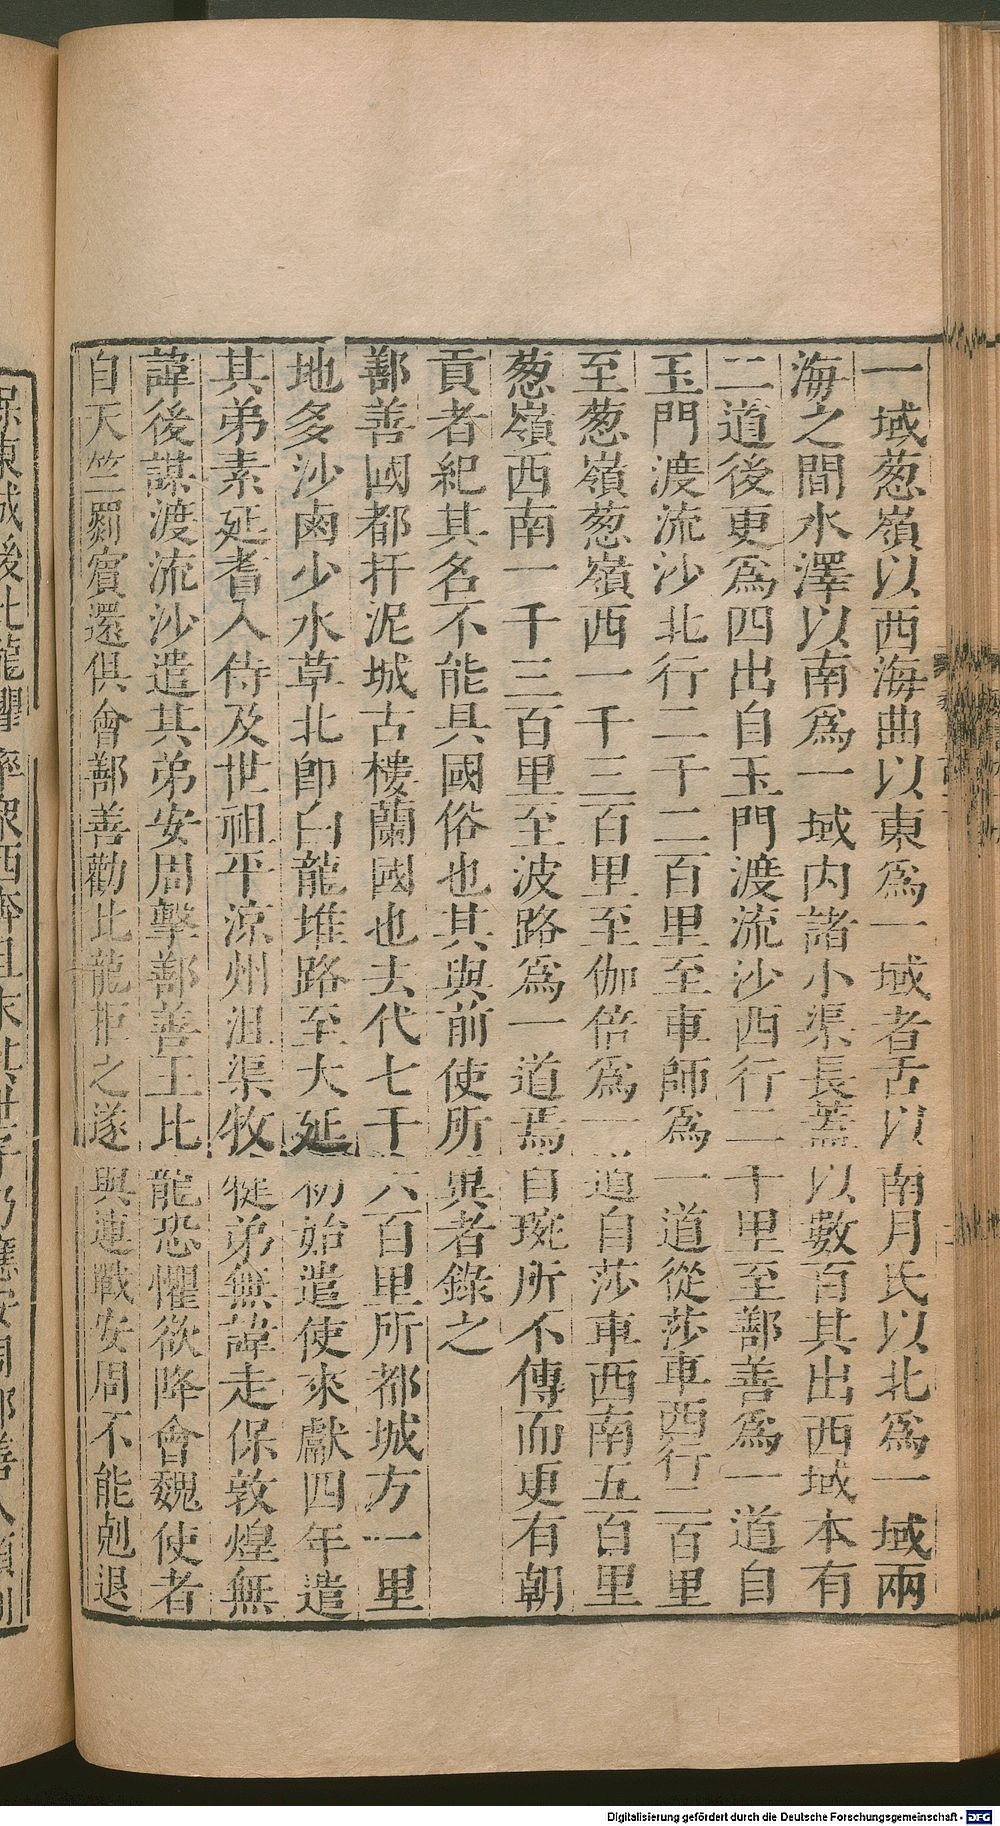 一域葱嶺以西海曲以東爲一域者舌以南月氏以北爲一域兩
海之間水澤以南爲一域内諸小渠長蓋以數百其出西域本有
二道後更爲四出自玉門渡流沙西行二千里至鄯善爲一道自
玉門渡流沙北行二千二百里至車師爲一道從莎車西行一百里
至葱嶺葱嶺西一千三百里至伽倍爲一道自莎車西南五百里
葱嶺西南一千三百里至波路爲一道焉自琬所不傳而更有朝
貢者紀其名不能具國俗也其與前使所異者錄之
鄯善國都扞泥城古樓蘭國也去代七千六百里所都城方一里
地多沙鹵少水草北卽白龍堆路至大延初始遣使來獻四年遣
其弟素延耆入侍及世祖平涼州沮渠牧犍弟無諱走保敦煌無
諱後謀渡流沙遣其弟安周擊鄯善王比龍恐懼欲降會魏使者
自天竺罽賓還俱會鄯善勸比龍拒之遂與連戰安周不能剋退
保東城後比龍懼率衆西奔且末其世子乃應安周鄯善人頗
Digitalisierung gefördert durch die Deutsche Forschungsgemeinschaft - DFG